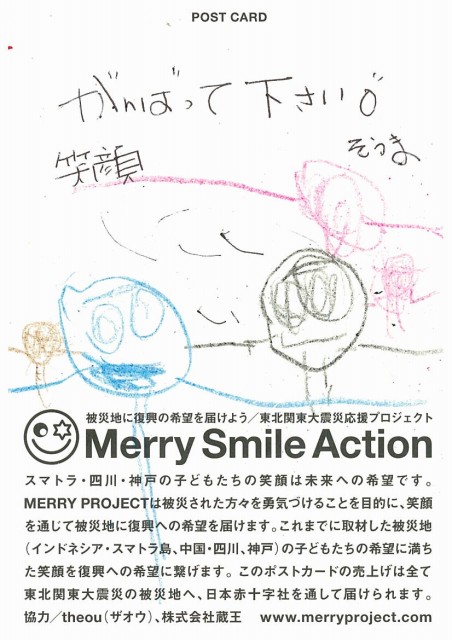 POST CARD
がんばって下さい
笑顔 そうま
被災地に復興の希望を届けよう/東北関東大震災応援プロジェクト
Merry Smile Action
スマトラ・四川・神戸の子どもたちの笑顔は未来への希望です。
MERRY PROJECTは被災された方々を勇気づけることを目的に、笑顔
を通じて被災地に復興への希望を届けます。これまでに取材した被災地
(インドネシア・スマトラ島、中国・四川、神戸)の子どもたちの希望に満ち
た笑顔を復興への希望に繋げます。このポストカードの売上げは全て
東北関東大震災の被災地へ、日本赤十字社を通して届けられます。
協力/theou(ザオウ)、株式会社蔵王 www.merryproject.com